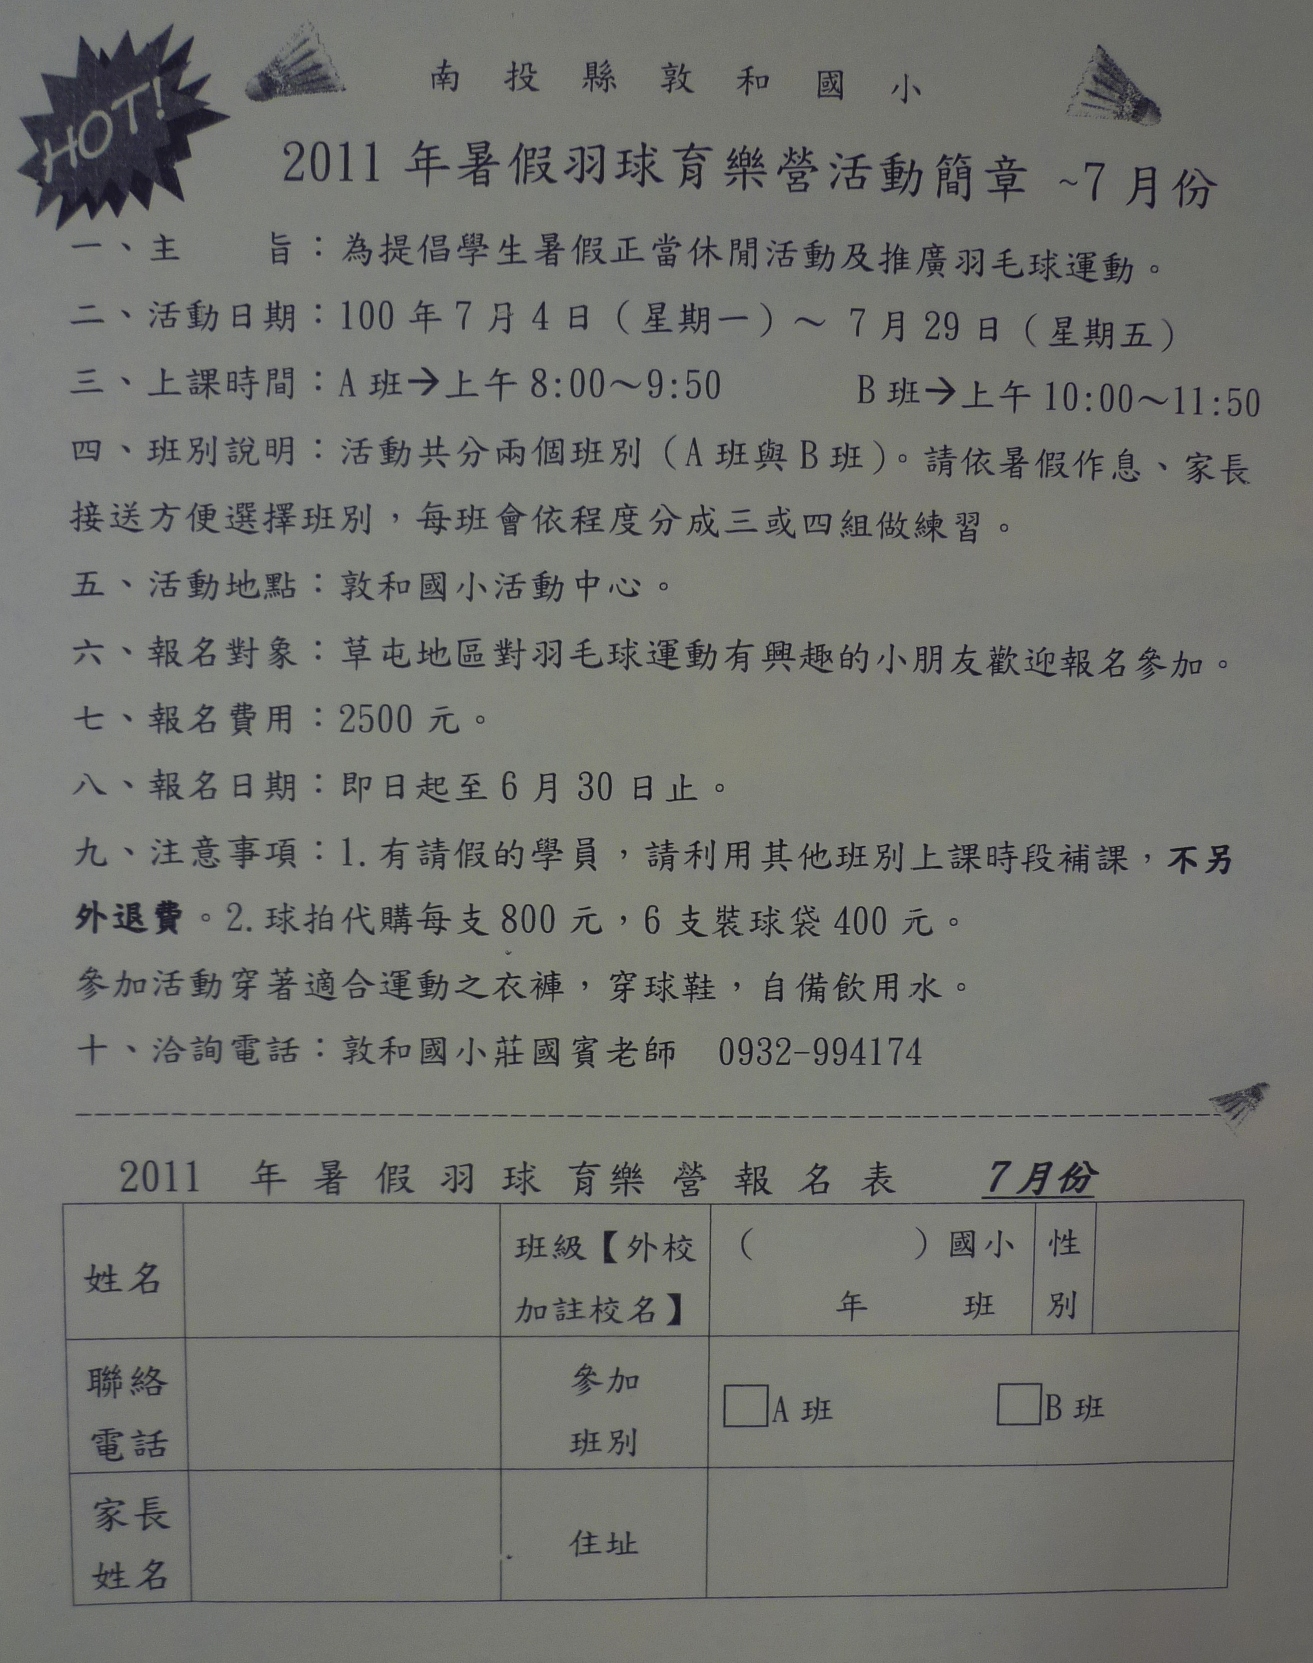 HOT!
南投縣敦和國小
2011 年暑假羽球育樂營活動簡章 ~7 月份
一、主　　旨：為提倡學生暑假正當休閒活動及推廣羽毛球運動。
二、活動日期：100 年 7 月 4 日（星期一）～ 7 月 29 日（星期五）
三、上課時間：A 班→上午 8:00～9:50　　　B 班→上午 10:00～11:50
四、班別說明：活動共分兩個班別（A 班與 B 班）。請依暑假作息、家長
接送方便選擇班別，每班會依程度分成三或四組做練習。
五、活動地點：敦和國小活動中心。
六、報名對象：草屯地區對羽毛球運動有興趣的小朋友歡迎報名參加。
七、報名費用：2500 元。
八、報名日期：即日起至 6 月 30 日止。
九、注意事項：1.有請假的學員，請利用其他班別上課時段補課，不另
外退費。2.球拍代購每支 800 元，6 支裝球袋 400 元。
參加活動穿著適合運動之衣褲，穿球鞋，自備飲用水。
十、洽詢電話：敦和國小莊國賓老師　0932-994174
2011 年暑假羽球育樂營報名表　7 月份
姓名　班級【外校　（　　　）國小　性
加註校名】　年　班　別
聯絡　參加
□A 班　□B 班
電話　班別
家長　住址
姓名